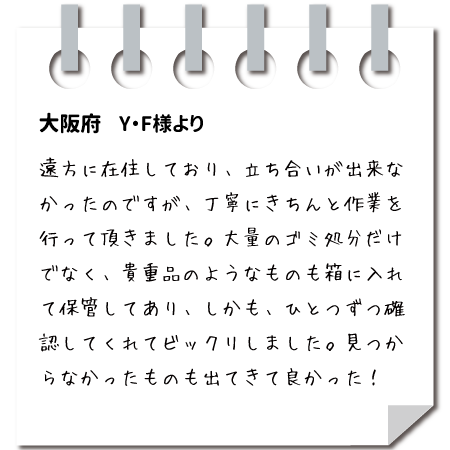 大阪府　Y・F様より
遠方に在住しており、立ち合いが出来な
かったのですが、丁寧にきちんと作業を
行って頂きました。大量のゴミ処分だけ
でなく、貴重品のようなものも箱に入れ
て保管してあり、しかも、ひとつずつ確
認してくれてビックリしました。見つか
らなかったものも出てきて良かった！